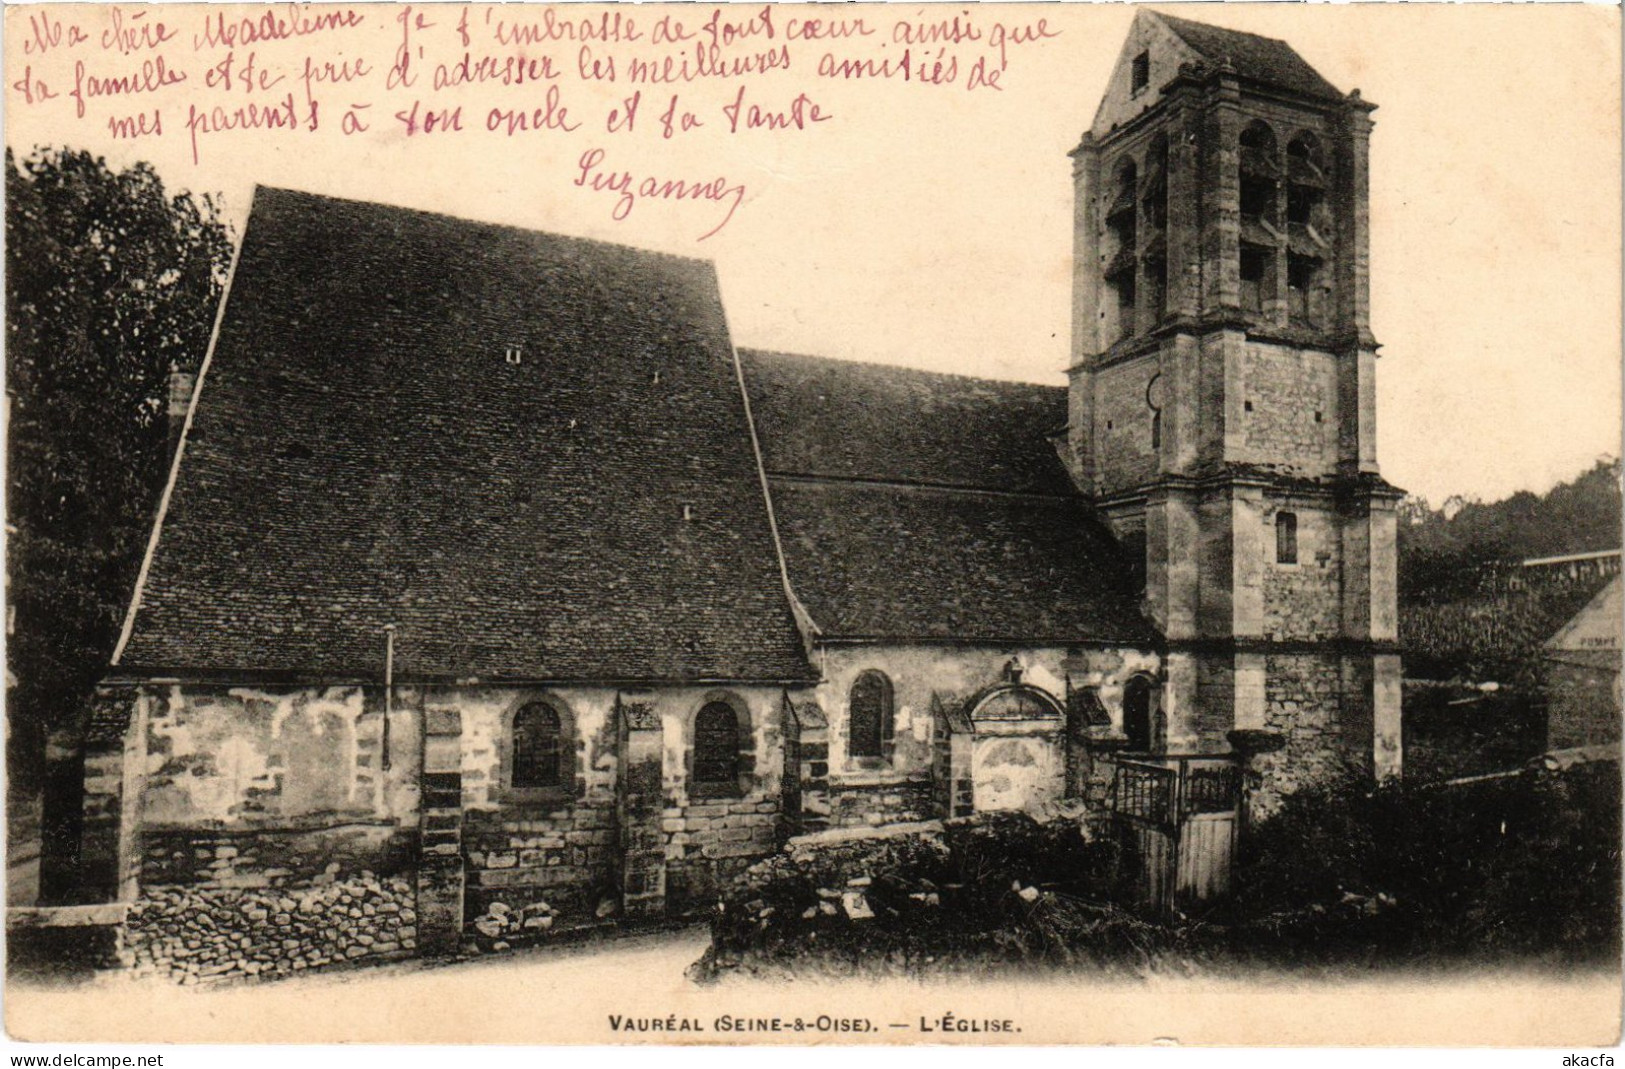 Ma chère Madeleine. Je t'embrasse de tout cœur ainsi que
ta famille et te prie d'adresser les meilleures amitiés de
mes parents à ton oncle et ta tante
Suzanne
POMPE
VAURÉAL (SEINE-&-OISE). — L'ÉGLISE.
delcampe.net
akacfa